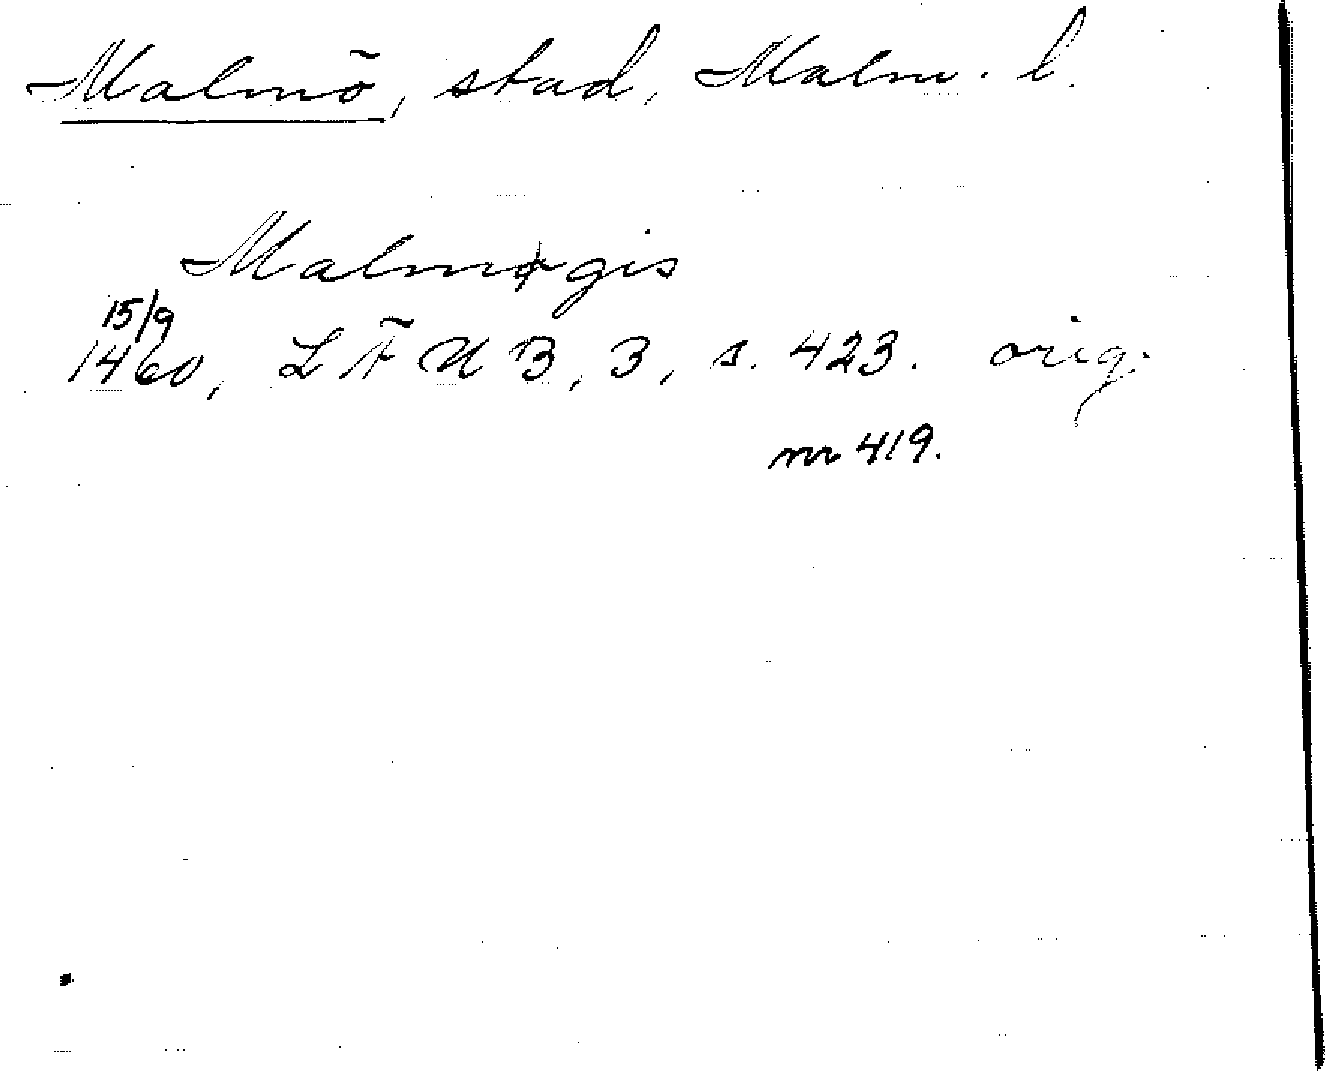 Malmö, stad, Malm. l.
Malmøgis
15/9
1460, LÄUB, 3, s. 423. orig.
nr 419.